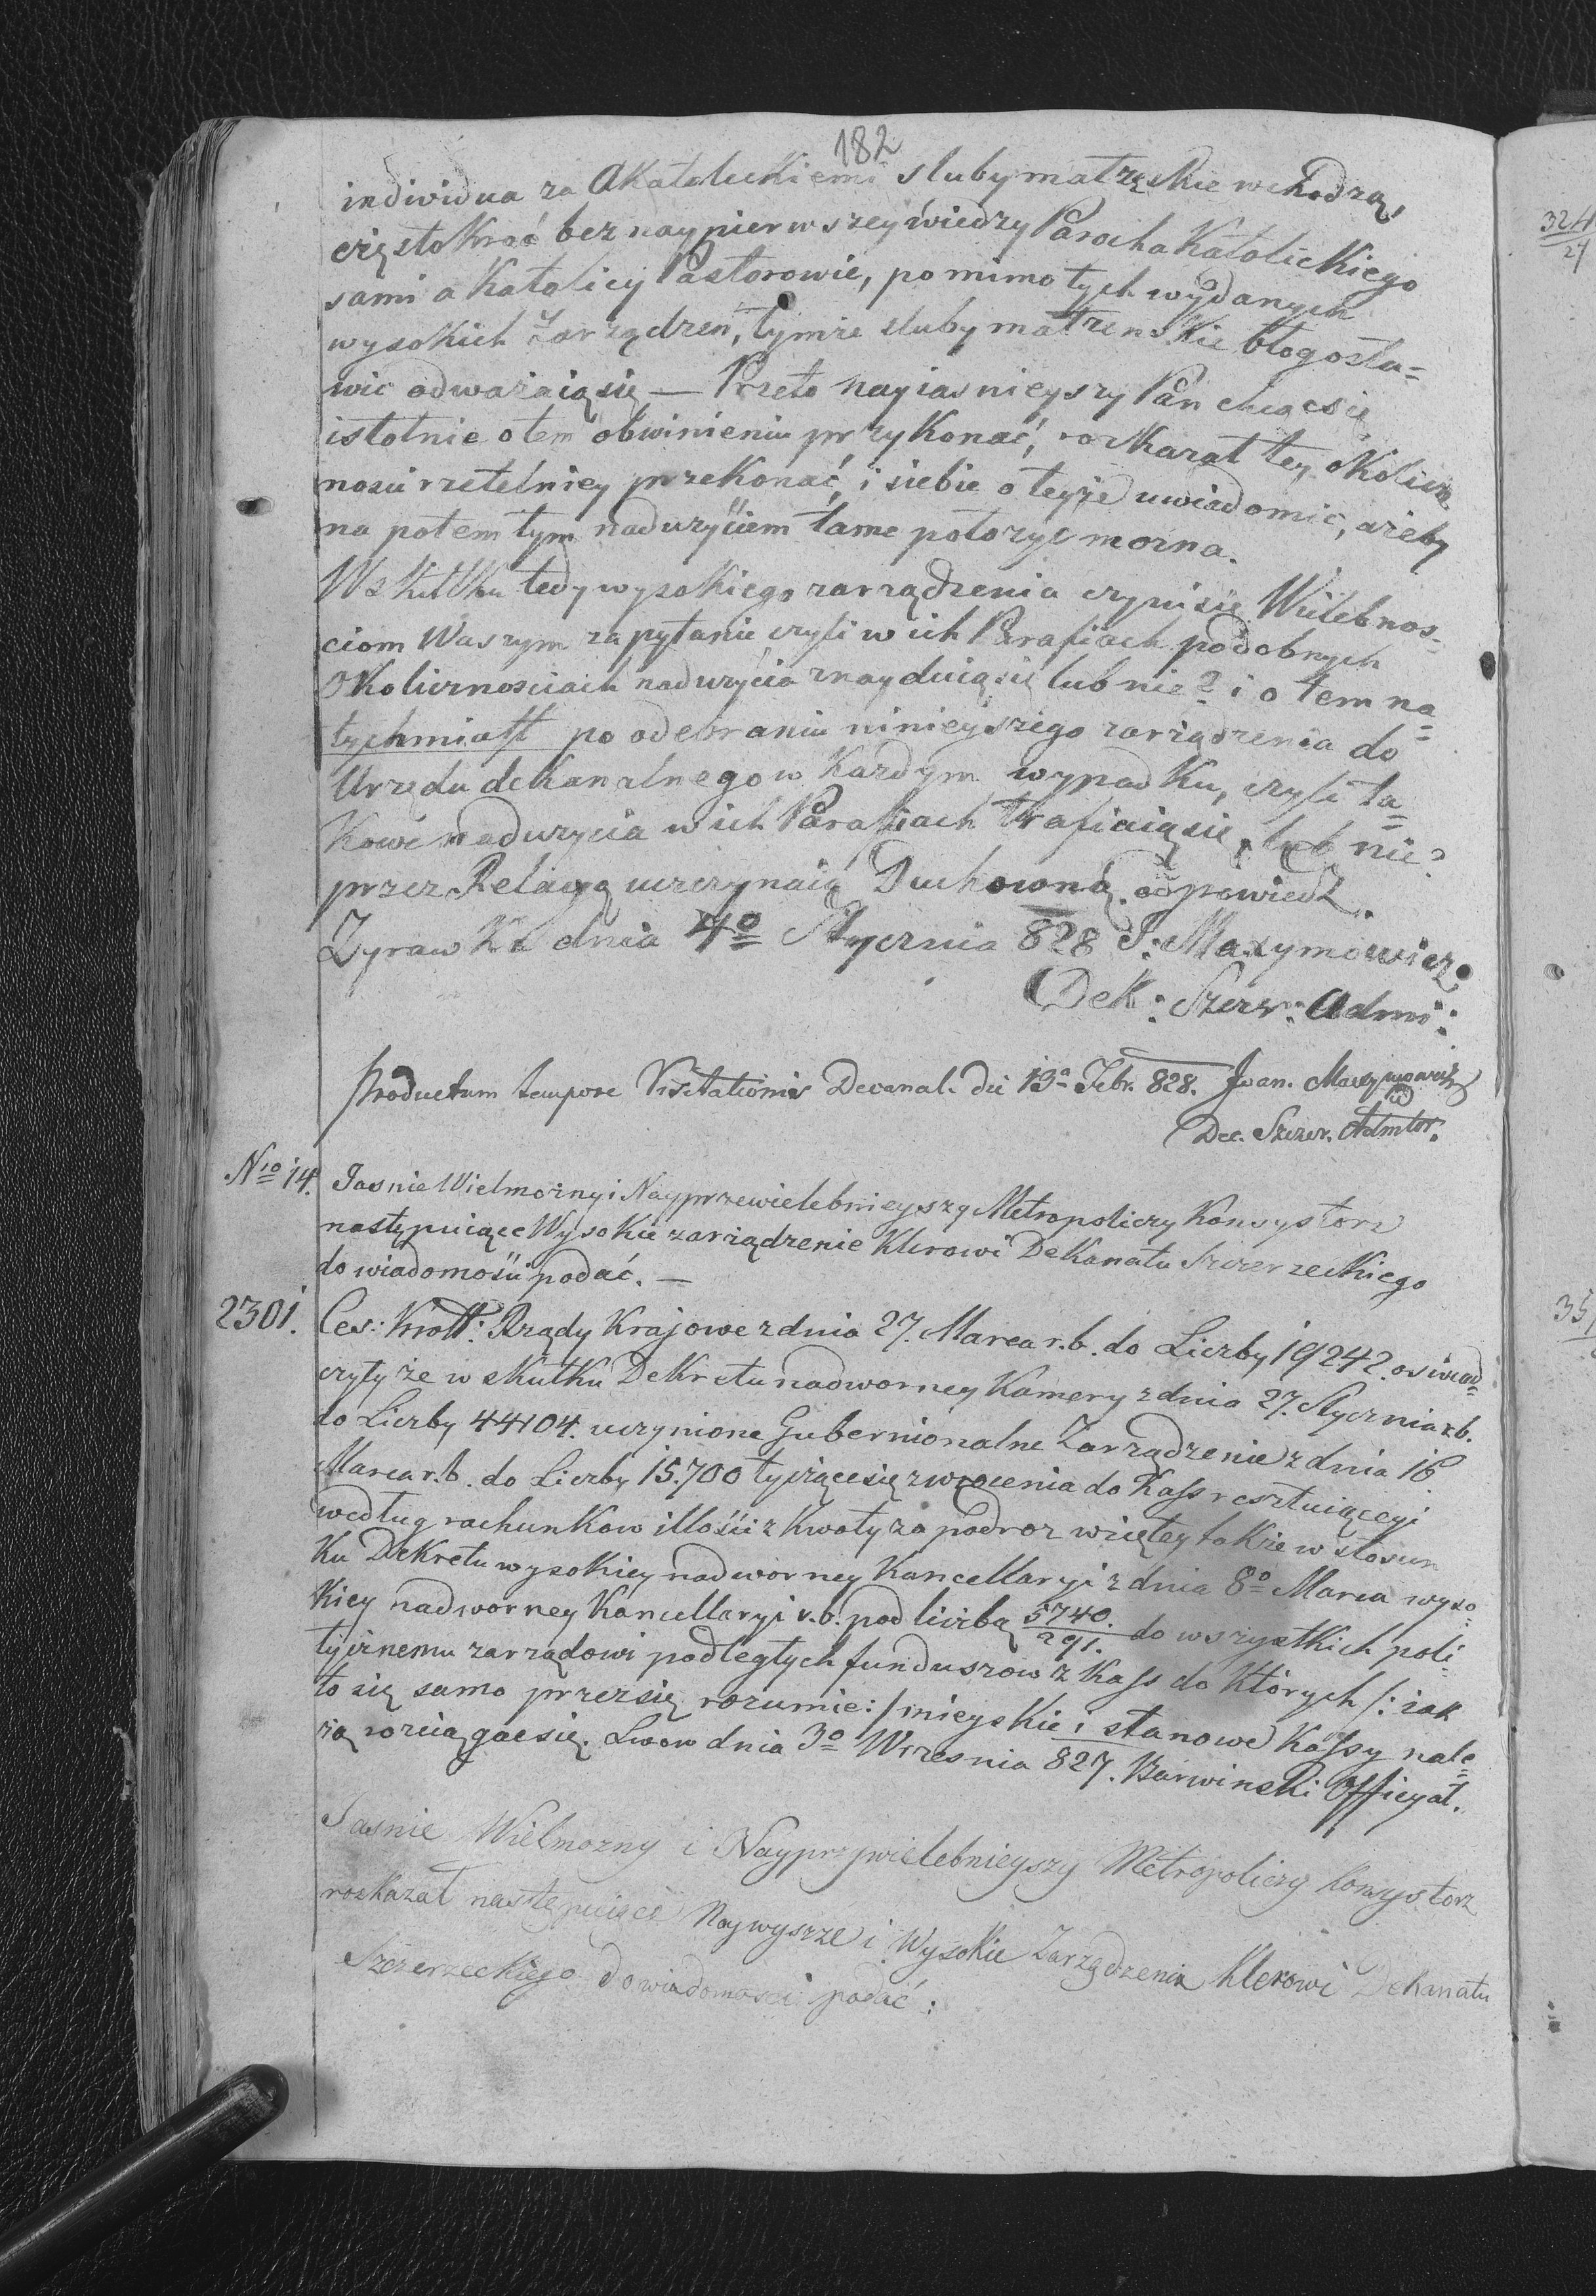 182
individua za Akatoluckiemi sluby matzęskie wchodzą,
częstokroć bez naypierwszey wiedzy Parocha Katolickiego
sami akatolicy Pastorowie, pomimo tych wydanych
wysokich Zarządzeń, tymże sluby matzenskie błogosła=
wic odważaią się — Przeto nayiasnieyszy Pan chcąc się
istotnie o tem obwinieniu przykonać, roskazał tey okolicz
nosci rzetelniey przekonać, i siebie o teyże uwiadomic, ażeby
na potem tym nadużyciem tame położyc mozna.
W skutku tedy wysokiego zarządzenia czyni się Wielebnos=
ciom Waszym zapytanie czyli w ich Parafiach podobnych
Okolicznosciach nadużycia znayduią się lub nie? i o tem na=
tychmiast po odebraniu ninieyszego zarządzenia do
Urzędu dekanalnego w każdym wypadku, czyli ta=
kowe nadużycia w ich Parafiach trafiaią się, lub nie?
przez Relacyą uczczynaią Duchowną odpowiedz.
Zyrawka dnia 4º Stycznia 828 J: Maxymowicz
Dek: Szczer: Admi:
Productum tempore Visitationis Decanal. die 13ª Febr. 828. Joan. Maxymowicz
Dec. Szczer. Admtor.
Nro 14. Jasnie Wielmożny i Nayprzewielebnieyszy Metropoliczy Konsystorz
następuiące Wysokie zarządzenie Klerowi Dekanatu Szczerzeckiego
do wiadomości podać. —
2301. Ces: Kroll: Rządy Krajowe z dnia 27. Marca r. b. do Liczby 19242. oswiad=
czyły że w skutku Dekretu nadworney Kamery z dnia 27. Stycznia r. b.
do Liczby 44104. uczynione Gubernionalne Zarządzenie z dnia 16
Marca r. b. do Liczby 15.700 tyczące się zwrocenia do Kass resztuiącey
według rachunkow illości z Kwoty za podroz wziętey także w stosun
ku Dekretu wysokiey nadworney Kancellaryi z dnia 8º Marca wyso=
kiey nadworney Kancellaryi r. b. pod liczbą 5740./291. do wszystkich poli=
tycznemu zarządowi podległych funduszow z Kass do których /: iak
to się samo przez się rozumie :/ mieyskie i stanowe Kassy nale=
żą rozciąga się. Lwow dnia 3º Wrzesnia 827. Barwinski Officyał.
Jasnie Wielmozny i Nayprzywielebnieyszy Metropoliczy Konsystorz
roskazał następuiące Naywyższe i Wysokie Zarządzenia Klerowi Dekanatu
Szczerzeckiego do wiadomosci podać :
324
27
35